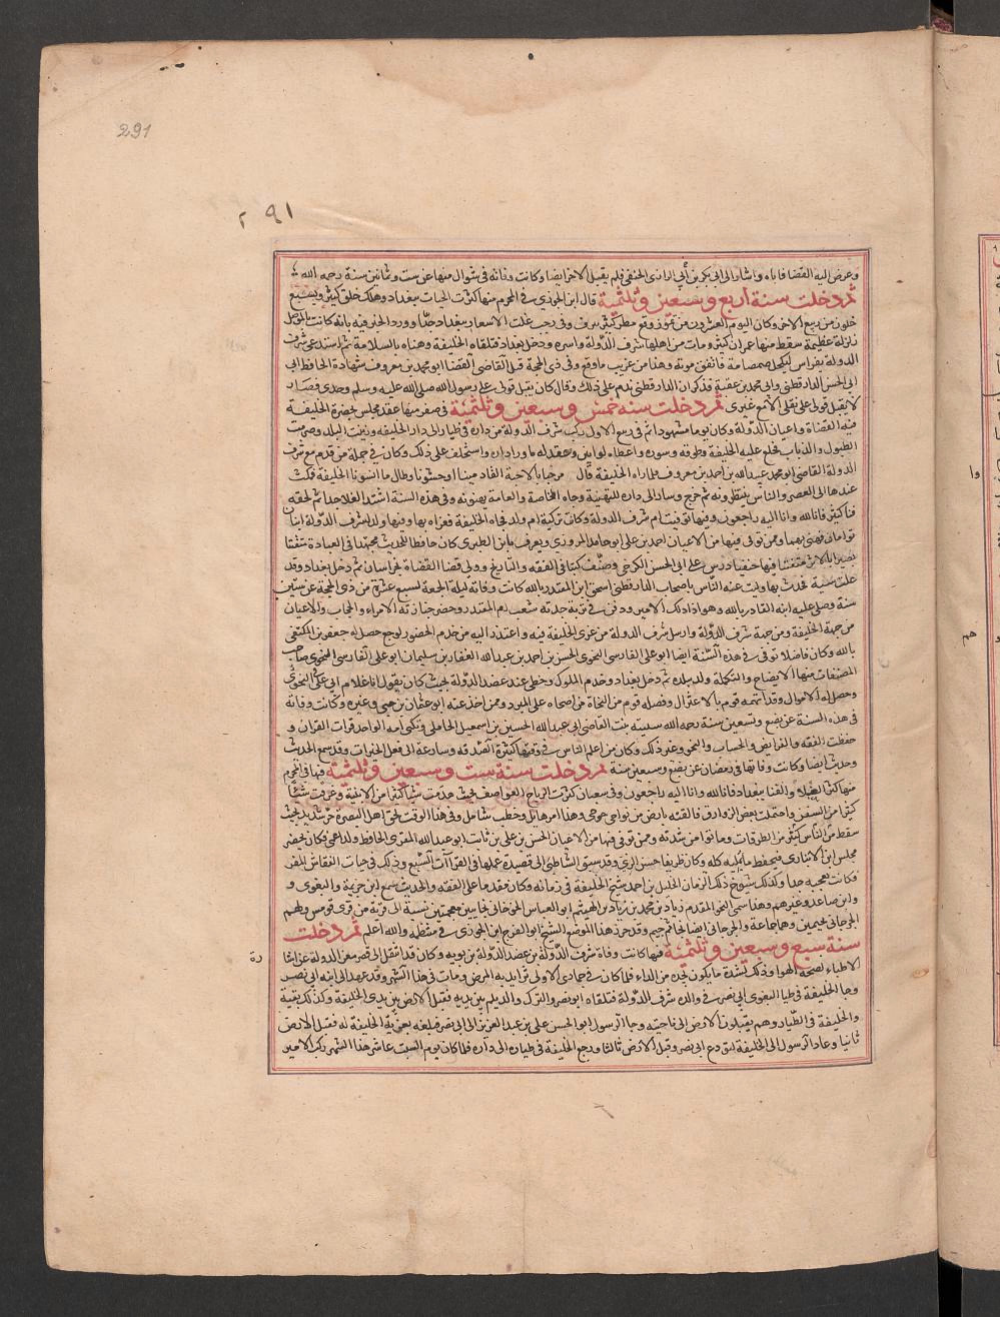 291
٢٩١
وعرض اليه القضا فاباه واشار الى ابى بكر بن أبى الرازى الحنفى فلم يقبل الاخر ايضا وكانت وفاته فى شوال منها عن ست وثمانين سنة رحمه الله
ثم دخلت سنة اربع وسبعين وثلثمية قال ابن الجوزى فى المحرم منها كثرت الحيات ببغداد وهلك خلق كثير ولسبع
خلون من ربيع الاخر وكان اليوم العشرون من تموز وقع مطر كثير ببرق وفى رجب غلت الاسعار ببغداد جدا وورد الخبر فيه بانه كانت بالموصل
زلزلة عظيمة سقط منها عمران كثير ومات من اهلها شرف الدولة واسره ودخل بغداد فتلقاه الخليفة وهناه بالسلامة ثم استدعى شرف
الدولة بفراس ليكحل صمصامة فاتفق موته وهذا من غريب ما وقع وفى ذى الحجة قبل القاضى القضا ابو محمد بن معروف شهادة الحافظ ابى
ابى الحسن الدارقطنى وابى محمد بن عقبة فذكر ان الدارقطنى ندم على ذلك وقال كان يقبل قولى على رسول الله صلى الله عليه وسلم وحدى فصار
لا يقبل قولى على نقلى الا مع غيرى ثم دخلت سنه خمس وسبعين وثلثمية فى صفر منها عقد مجلس بحضرة الخليفة
فيه القضاة واعيان الدولة وكان يوما مشهودا ثم فى ربيع الاول ركب شرف الدولة من داره فى طيار الى دار الخليفه وزينت البلد وضربت
الطبول والدباب فخلع عليه الخليفة وطوقه وسوره واعطاه لواءين وعقد له ما ورا داره واستخلف على ذلك وكان فى جملة من قدم مع شرف
الدولة القاضى ابو محمد عبيد الله بن احمد بن معروف فلما راه الخليفة قال مرحبا بالاحبة القادمينا اوحشونا وطال ما انسونا الخليفة فمكث
عندها الى العصر والناس ينتظرونه ثم خرج وسار الى داره للتهنية وجاه الخاصة والعامة يهنونه وفى هذه السنة اشتد الغلا جدا ثم لحقه
فنا كثير فانا لله وانا اليه راجعون وفيها توفيت ام شرف الدولة وكانت تركية ام ولد فجاه الخليفة فعزاه بها وفيها ولد لشرف الدولة ابنان
توامان فهنى بهما وممن توفى فيها من الاعيان احمد بن على ابو حامد المروزى ويعرف بابن الطبرى كان حافظا للحديث مجتهدا فى العبادة متقنا
بصيرا بالاثر متفننا فيها حنفيا درس على ابى الحسن الكرخى وصنف كتبا فى الفقه والتاريخ وولى قضا القضاة بخراسان ثم دخل بغداد وقد
علت سنيه فحدث بها وكتب عنه الناس باصحاب الدارقطنى اسحق ابن المقتدر بالله كانت وفاته ليلة الجمعة لسبع عشرة من ذى الحجة عن ستين
سنة وصلى عليه ابنه القادر بالله وهو اذ ذاك الامير ودفن فى تربة جدته شغب ام المقتدر وحضر جنازته الامراء والحجاب والاعيان
من جهة الخليفة ومن جهة شرف الدولة وارسل شرف الدولة من عزى الخليفة فيه واعتذر اليه من عدم الحضور لوجع حصل له جعفر بن المكتفى
بالله وكان فاضلا توفى فى هذه السنة ايضا ابو على الفارسى النحوى الحسن بن احمد بن عبد الله الغفار بن سليمان ابو على الفارسى النحوى صاحب
المصنفات منها الايضاح والتكملة ولد ببلده ثم دخل بغداد وخدم الملوك وحظى عند عضد الدولة بحيث كان يقول انا غلام ابى على النحوى
وحصل له الاموال وقد اتهمه قوم بالاعتزال وفضله قوم من النحاة من اصحابه على المبرد وممن اخذ عنه ابو عثمان بن جنى وغيره وكانت وفاته
فى هذه السنة عن بضع وتسعين سنة رحمه الله ستيته بنت القاضى ابى عبد الله الحسين بن اسمعيل المحاملى وتكنى امه الواحد قرات القران و
حفظت الفقه والفرايض والحساب والنحو وغير ذلك وكان من اعلم الناس فى وقتها كثيرة الصدقه وسارعة الى فعل الخيرات وقد سمع الحديث
وحديث ايضا وكانت وفاتها فى رمضان عن بضع وسبعين سنة ثم دخلت سنة ست وسبعين وثلثمية فيها فى المحرم
منها كثر الغلا والفنا ببغداد فانا لله وانا اليه راجعون وفى شعبان كثرت الرياح العواصف بحيث هدمت شيا كثيرا من الابنية وغرقت شيئا
كثيرا من السفن واحتملت بعض الزوارق فالقته بارض من نواحى جوخى وهذا امر هائل وخطب شامل وفى هذا الوقت لحق اهل البصرة حر شديد بحيث
سقط من الناس كثير من الطرقات وماتوا من شدته وممن توفى فيها من الاعيان الحسن بن على بن ثابت ابو عبد الله المقرى الحافظ ولد اعمى فكان يحضر
مجلس ابن الانبارى فيحفظ ما يمليه كله وكان ظريفا حسن الزى وقد سبق الشاطبى الى قصيدة عملها فى القراآت السبع وذلك فى حيات النقاش المفسر
فكانت تعجبه جدا وكذلك شيوخ ذلك الزمان الخليل بن احمد شيخ الخليفة فى زمانه وكان مقدما على الفقه والحديث سمع ابن خزيمة والبغوى و
وابن صاعد وغيرهم وهذا سمى النحو المقدم زياد بن محمد بن زياد بن الهيثم ابو العباس الخرخانى بخايين معجمتين نسبة الى قرية من قرى قومس ولهم
الجرجانى بجيمين وهم جماعة والخرجانى ايضا بخا ثم جيم وقد حرر هذا الموضع الشيخ ابو الفرج ابن الجوزى فى منتظمه والله اعلم ثم دخلت
سنة سبع وسبعين وثلثمية فيها كانت وفاة شرف الدولة بن عضد الدولة بن بويه وكان قد انتقل الى قصر معز الدولة عن اشا
رة
الاطباء لصحة الهوا وذلك لشدة ما يكون يجده من الداء فلما كان فى جمادى الاولى تزايد به المرض ومات فى هذا الشهر وقد عهد الى ابنه ابى نصر
وجا الخليفة فى طيا ليعزى ابى نصر فى والده شرف الدولة فتلقاه ابو نصر والترك والديلم بين يديه فقبل الارض بين يدى الخليفة وكذلك بقية
والخليفة فى الطيار وهم يقبلون الارض الى ناحيته وجا الرسول ابو الحسن على بن عبد العزيز الى ابى نصر فبلغه بعزية الخليفة له فقبل الارض
ثانيا وعاد الرسول الى الخليفة لتودع ابى نصر وقبل الارض ثالثا ورجع الخليفة فى طياره الى داره فلما كان يوم السبت عاشر هذا الشهر ركب الامير
وا
هم